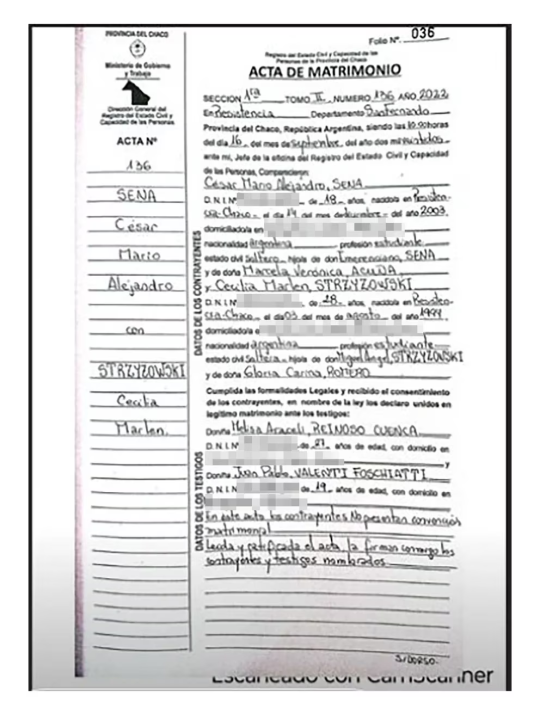 PROVINCIA DEL CHACO
Ministerio de Gobierno
y Trabajo
Dirección General del
Registro del Estado Civil y
Capacidad de las Personas
ACTA Nº
136
SENA
César
Mario
Alejandro
con
STRZYZOWSKI
Cecilia
Marlen.
Folio Nº. 036
Registro del Estado Civil y Capacidad de las
Personas de la Provincia del Chaco
ACTA DE MATRIMONIO
SECCION 1ra TOMO II NUMERO 136 AÑO 2022
En Resistencia Departamento San Fernando
Provincia del Chaco, República Argentina, siendo las 10:00 horas
del día 16 del mes de septiembre del año dos mil veintidos
ante mi, Jefe de la oficina del Registro del Estado Civil y Capacidad
de las Personas, Comparecieron:
César Mario Alejandro, SENA
D.N.I Nº de 18 años, nacido/a en Resisten-
cia-Chaco el día 14 del mes de diciembre del año 2003,
domiciliado/a en
nacionalidad argentina profesión estudiante
estado civil Soltero hijo/a de don Emerenciano, SENA
y de doña Marcela Verónica, ACUÑA
y Cecilia Marlen, STRZYZOWSKI
D.N.I Nº de 28 años, nacido/a en Resisten-
cia-Chaco el día 03 del mes de agosto del año 1994
domiciliado/a e
nacionalidad argentina profesión estudiante
estado civil Soltera hijo/a de don Miguel Angel, STRZYZOWSKI
y de doña Gloria Carina, ROMERO
DATOS DE LOS CONTRAYENTES
Cumplida las formalidades Legales y recibido el consentimiento
de los contrayentes, en nombre de la ley los declaro unidos en
legítimo matrimonio ante los testigos:
Don/ña Melisa Araceli, REINOSO CUENCA
D.N.I.Nº de 27 años de edad, con domicilio en
y
Don/ña Juan Pablo, VALENTI FOSCHIATTI
D.N.I.Nº de 19 años de edad, con domicilio en
En este acto los contrayentes No presentan convención
matrimonial
Leída y ratificada el acta, la firman conmigo los
contrayentes y testigos nombrados
DATOS DE LOS TESTIGOS
S/DORSO.
Escaneado con CamScanner